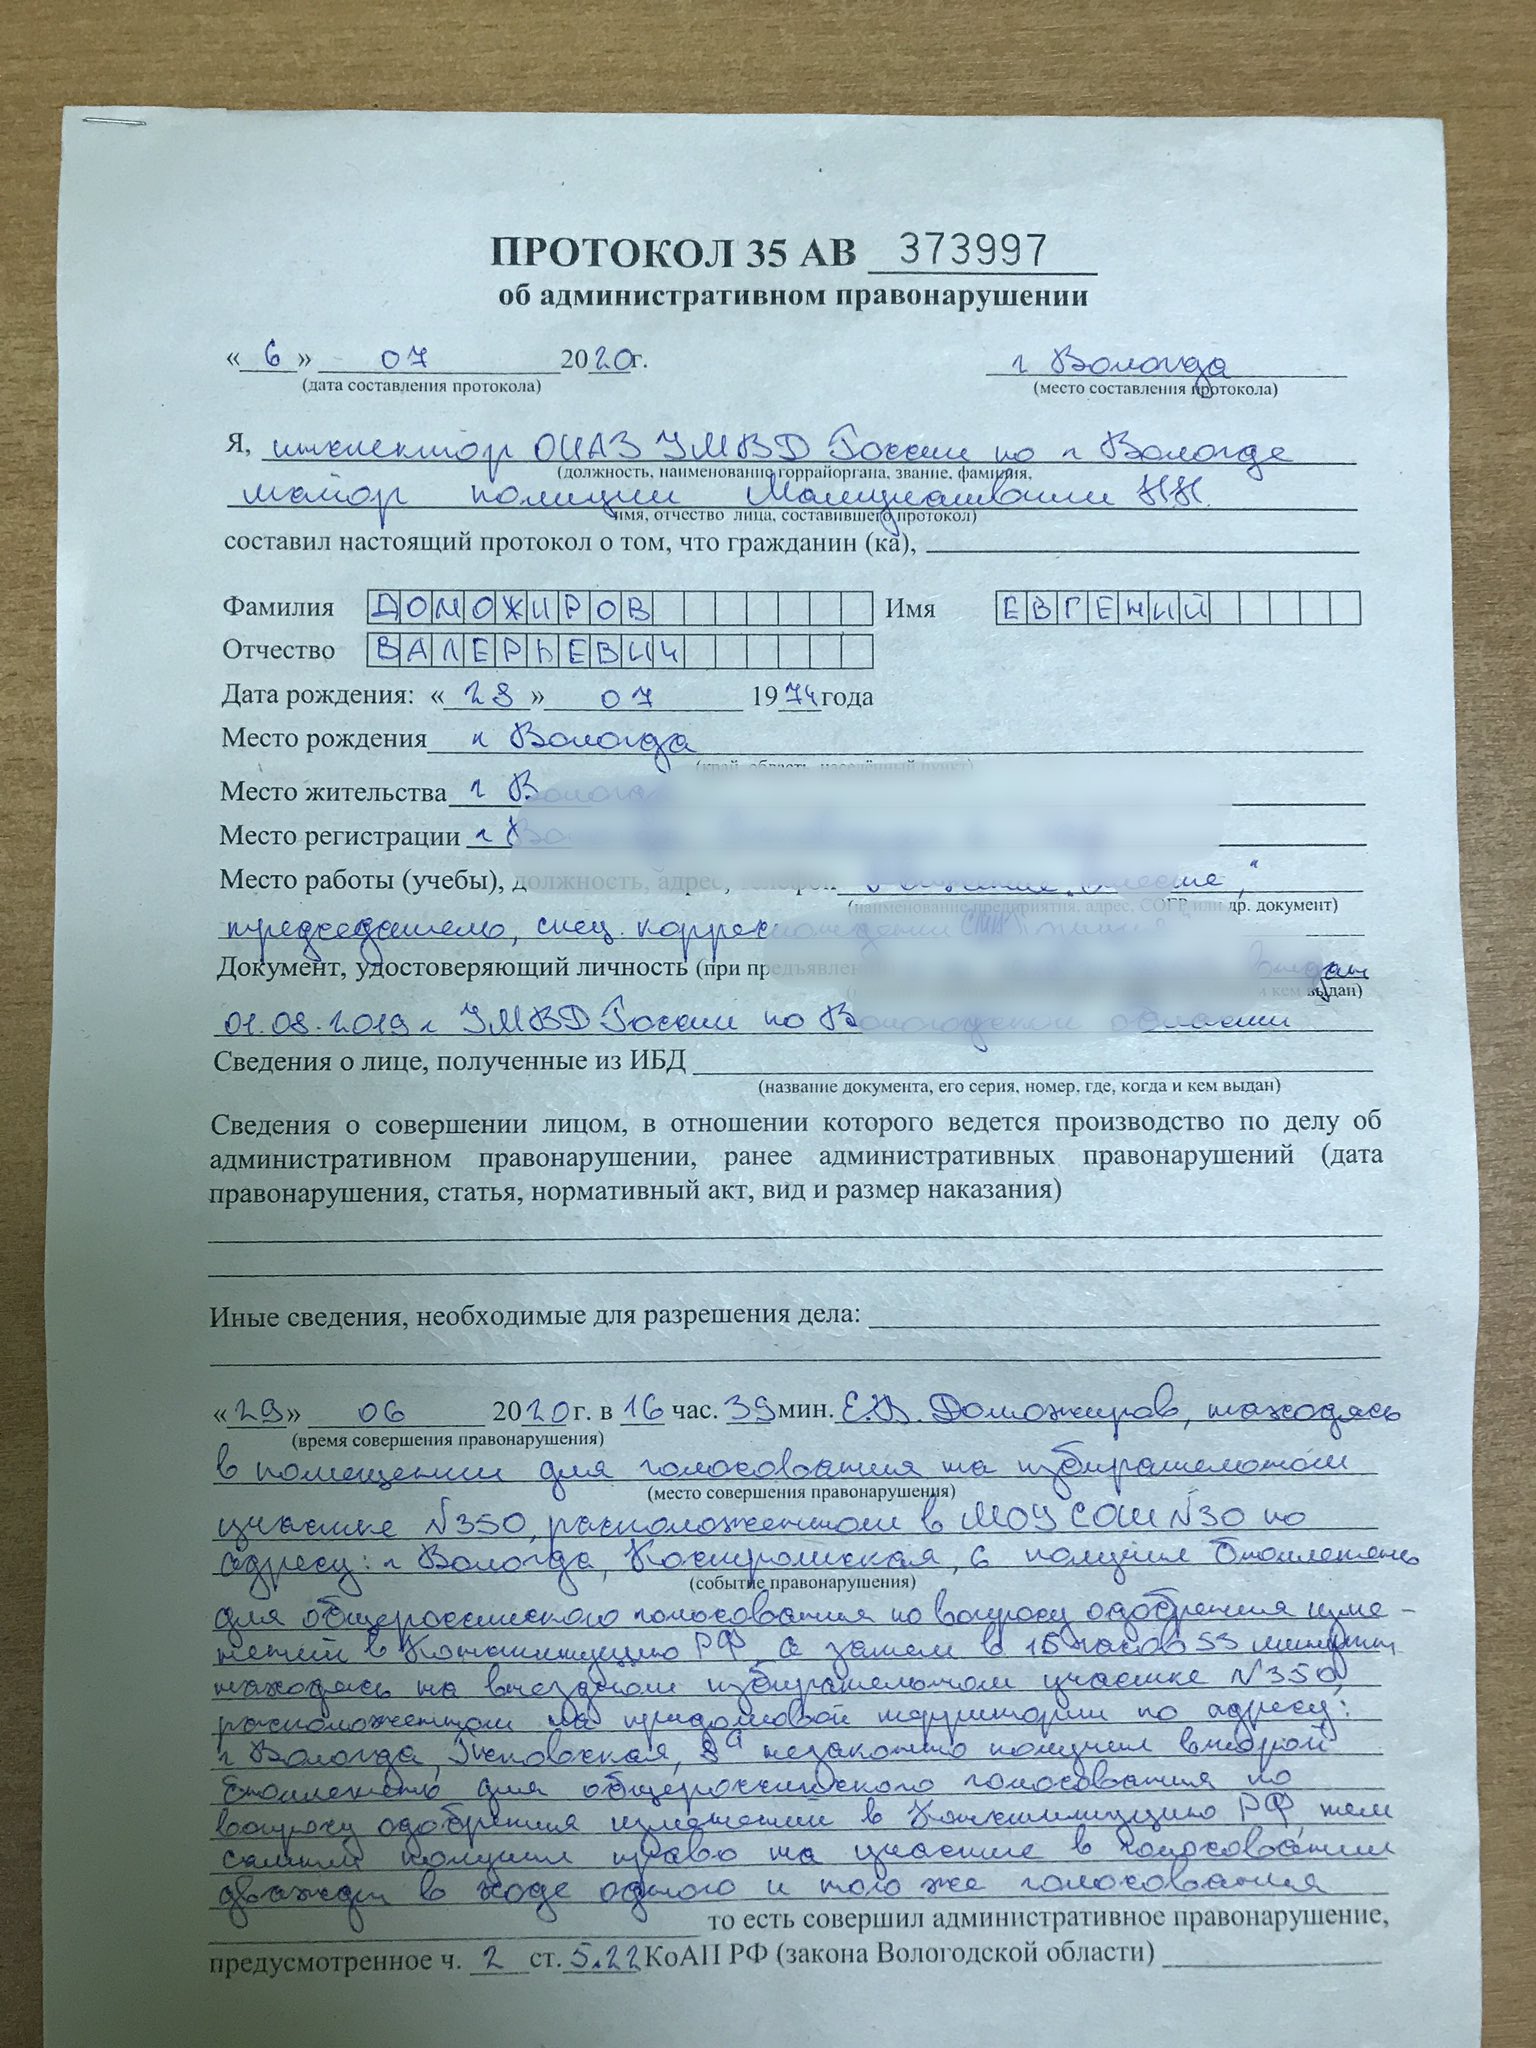 ПРОТОКОЛ 35 АВ 373997
об административном правонарушении
« 6 » 07 2020г. г Вологда
(дата составления протокола) (место составления протокола)
Я, инспектор ОИАЗ УМВД России по г Вологде
(должность, наименование горрайоргана, звание, фамилия,
майор полиции Н.Н.
имя, отчество лица, составившего протокол)
составил настоящий протокол о том, что гражданин (ка),
Фамилия ДОМОЖИРОВ Имя ЕВГЕНИЙ
Отчество ВАЛЕРЬЕВИЧ
Дата рождения: « 28 » 07 1974 года
Место рождения г Вологда
(край, область, населённый пункт)
Место жительства г Волог
Место регистрации г
Место работы (учебы), должность, адрес, телефон
(наименование предприятия, адрес, СОГР или др. документ)
председатель, спец. корреспондент СМИ
Документ, удостоверяющий личность (при предъявлен выдан
и кем выдан)
01.08.2019 г УМВД России по Вологодской области
Сведения о лице, полученные из ИБД
(название документа, его серия, номер, где, когда и кем выдан)
Сведения о совершении лицом, в отношении которого ведется производство по делу об
административном правонарушении, ранее административных правонарушений (дата
правонарушения, статья, нормативный акт, вид и размер наказания)
Иные сведения, необходимые для разрешения дела:
« 29 » 06 2020 г. в 16 час. 39 мин. Е.В. Доможиров, находясь
(время совершения правонарушения)
в помещении для голосования на избирательном
(место совершения правонарушения)
участке N350, расположенном в МОУ СОШ N30 по
адресу: г Вологда, Костромская, 6 получил бюллетень
(событие правонарушения)
для общероссийского голосования по вопросу одобрения изме-
нений в Конституцию РФ, а затем в 16 часов 55 минут,
находясь на выездном избирательном участке N350,
расположенном на придомовой территории по адресу:
г Вологда, 8а незаконно получил второй
бюллетень для общероссийского голосования по
вопросу одобрения изменений в Конституцию РФ, тем
самым получил право на участие в голосовании
дважды в ходе одного и того же голосования
то есть совершил административное правонарушение,
предусмотренное ч. 2 ст. 5.22 КоАП РФ (закона Вологодской области)